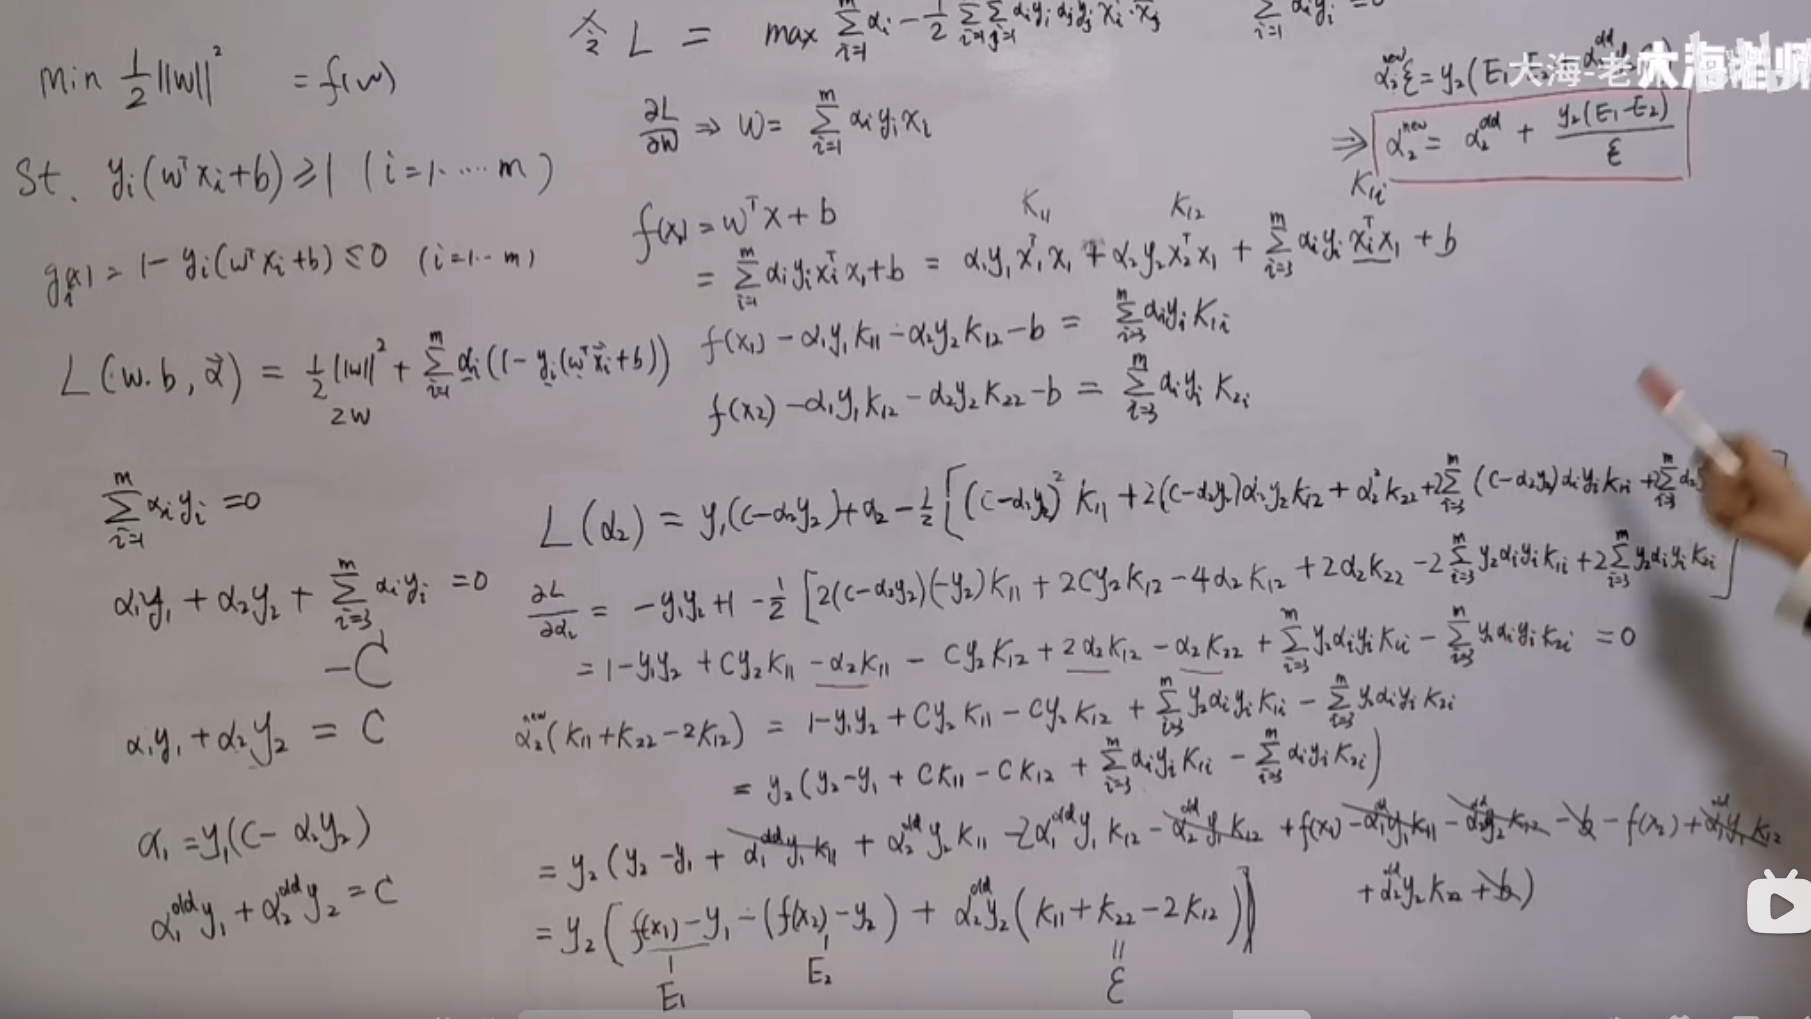 min 1/2 ||w||² = f(w)
St. yᵢ(wᵀxᵢ+b) ≥ 1 (i=1.....m)
gᵢ(x) = 1 - yᵢ(wᵀxᵢ+b) ≤ 0 (i=1..m)
L(w.b, α⃗) = 1/2 ||w||² + Σᵢ₌₁ᵐ αᵢ(1-yᵢ(wᵀx⃗ᵢ+b))
2w
Σᵢ₌₁ᵐ αᵢyᵢ = 0
α₁y₁ + α₂y₂ + Σᵢ₌₃ᵐ αᵢyᵢ = 0
-C
α₁y₁ + α₂y₂ = C
α₁ = y₁(C - α₂y₂)
α₁ᵒˡᵈy₁ + α₂ᵒˡᵈy₂ = C
令 L = max Σᵢ₌₁ᵐ αᵢ - 1/2 Σᵢ₌₁ Σⱼ₌₁ αᵢyᵢαⱼyⱼxᵢ·xⱼ
Σᵢ₌₁ αᵢyᵢ = 0
∂L/∂w ⇒ w = Σᵢ₌₁ᵐ αᵢyᵢxᵢ
f(x₁) = wᵀx + b
K₁₁ K₁₂ K₁ᵢ
= Σᵢ₌₁ᵐ αᵢyᵢxᵢᵀx₁+b = α₁y₁x₁ᵀx₁ + α₂y₂x₂ᵀx₁ + Σᵢ₌₃ᵐ αᵢyᵢxᵢᵀx₁ + b
f(x₁) - α₁y₁K₁₁ - α₂y₂K₁₂ - b = Σᵢ₌₃ᵐ αᵢyᵢK₁ᵢ
f(x₂) - α₁y₁K₁₂ - α₂y₂K₂₂ - b = Σᵢ₌₃ᵐ αᵢyᵢK₂ᵢ
L(α₂) = y₁(C-α₂y₂)+α₂ - 1/2 [(C-α₂y₂)²K₁₁ + 2(C-α₂y₂)α₂y₂K₁₂ + α₂²K₂₂ + 2Σᵢ₌₃ᵐ (C-α₂y₂)αᵢyᵢK₁ᵢ + 2Σᵢ₌₃ᵐ α₂
∂L/∂α₂ = -y₁y₂ + 1 - 1/2 [2(C-α₂y₂)(-y₂)K₁₁ + 2Cy₂K₁₂ - 4α₂K₁₂ + 2α₂K₂₂ - 2Σᵢ₌₃ᵐ y₂αᵢyᵢK₁ᵢ + 2Σᵢ₌₃ᵐ y₂αᵢyᵢK₂ᵢ]
= 1 - y₁y₂ + Cy₂K₁₁ - α₂K₁₁ - Cy₂K₁₂ + 2α₂K₁₂ - α₂K₂₂ + Σᵢ₌₃ᵐ y₂αᵢyᵢK₁ᵢ - Σᵢ₌₃ᵐ y₂αᵢyᵢK₂ᵢ = 0
α₂ⁿᵉʷ(K₁₁+K₂₂-2K₁₂) = 1 - y₁y₂ + Cy₂K₁₁ - Cy₂K₁₂ + Σᵢ₌₃ᵐ y₂αᵢyᵢK₁ᵢ - Σᵢ₌₃ᵐ y₂αᵢyᵢK₂ᵢ
= y₂(y₂-y₁ + CK₁₁ - CK₁₂ + Σᵢ₌₃ᵐ αᵢyᵢK₁ᵢ - Σᵢ₌₃ᵐ αᵢyᵢK₂ᵢ)
= y₂(y₂-y₁ + α₁ᵒˡᵈy₁K₁₁ + α₂ᵒˡᵈy₂K₁₁ - 2α₁ᵒˡᵈy₁K₁₂ - α₂ᵒˡᵈy₁K₁₂ + f(x₁) - α₁ᵒˡᵈy₁K₁₁ - α₂ᵒˡᵈy₂K₁₂ - b - f(x₂) + α₁ᵒˡᵈy₁K₁₂
+ α₂ᵒˡᵈy₂K₂₂ + b)
= y₂(f(x₁)-y₁ - (f(x₂)-y₂) + α₂ᵒˡᵈy₂(K₁₁+K₂₂-2K₁₂))
E₁ E₂ || ε
α₂ⁿᵉʷε = y₂(E₁
⇒ α₂ⁿᵉʷ = α₂ᵒˡᵈ + y₂(E₁-E₂)/ε
大海-老
大海老师